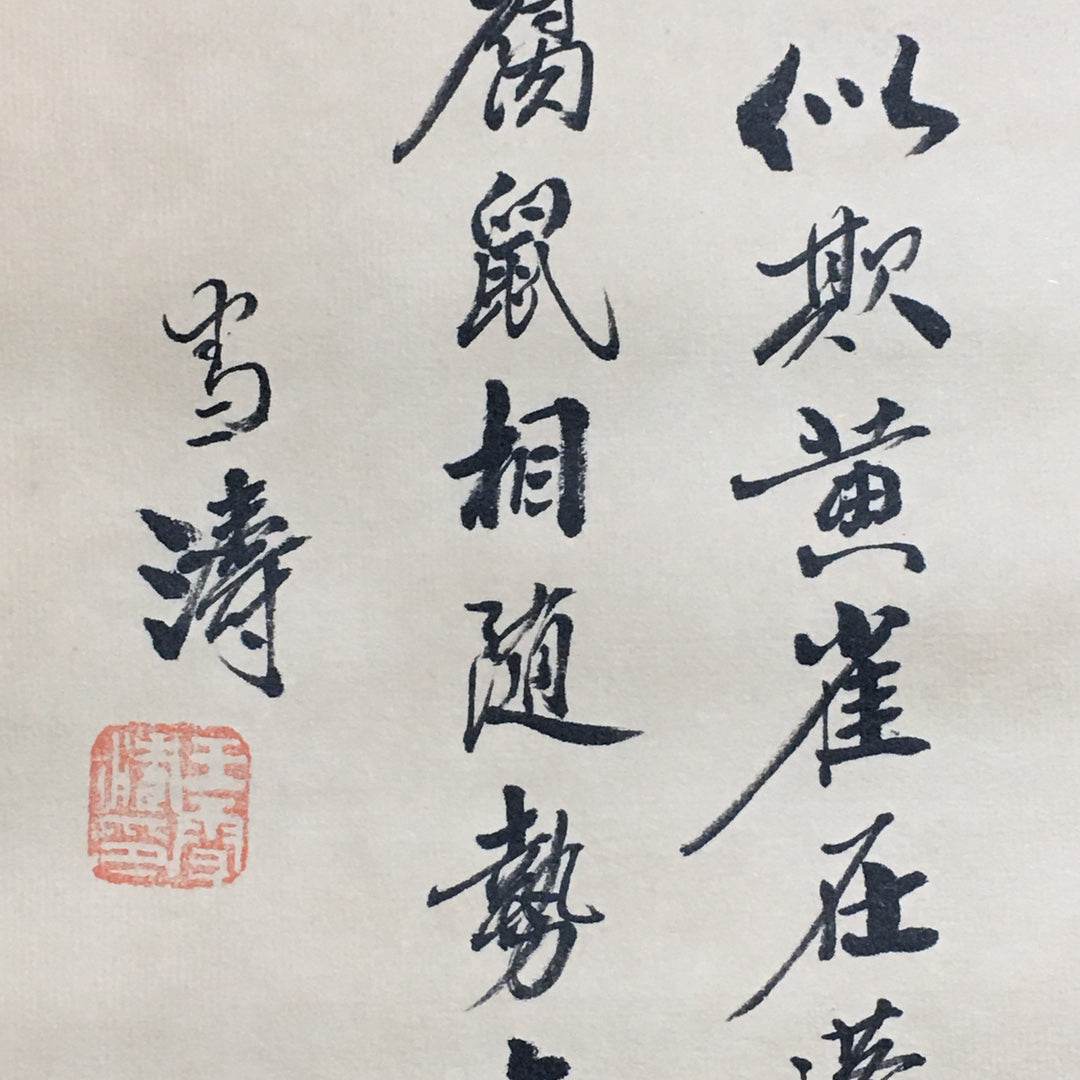 似欺黄雀在
腐鼠相随势
雪涛